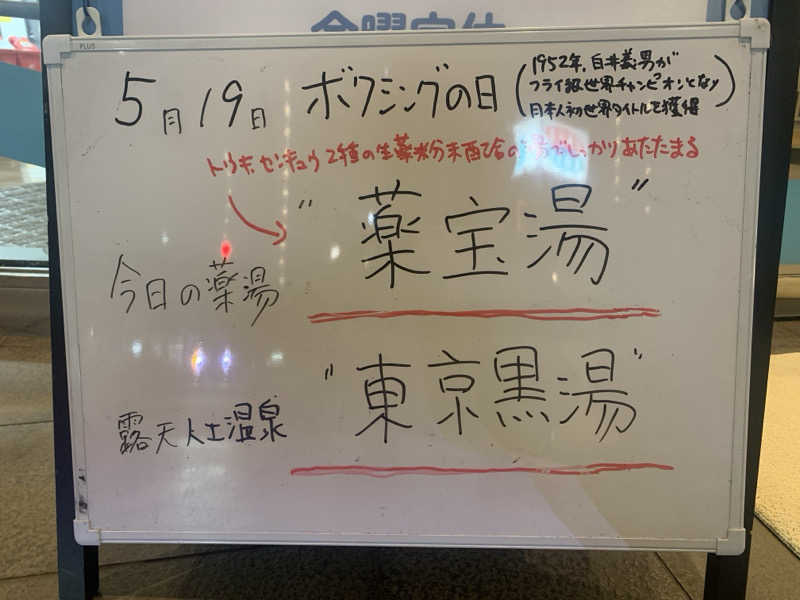 金曜定休
PLUS
5月19日 ボクシングの日 (1952年、白井義男が
フライ級世界チャンピオンとなり
日本人初世界タイトルを獲得)
トウキ、センキュウ 2種の生薬粉末配合の湯でしっかりあたたまる
"薬宝湯"
今日の薬湯
"東京黒湯"
露天人工温泉